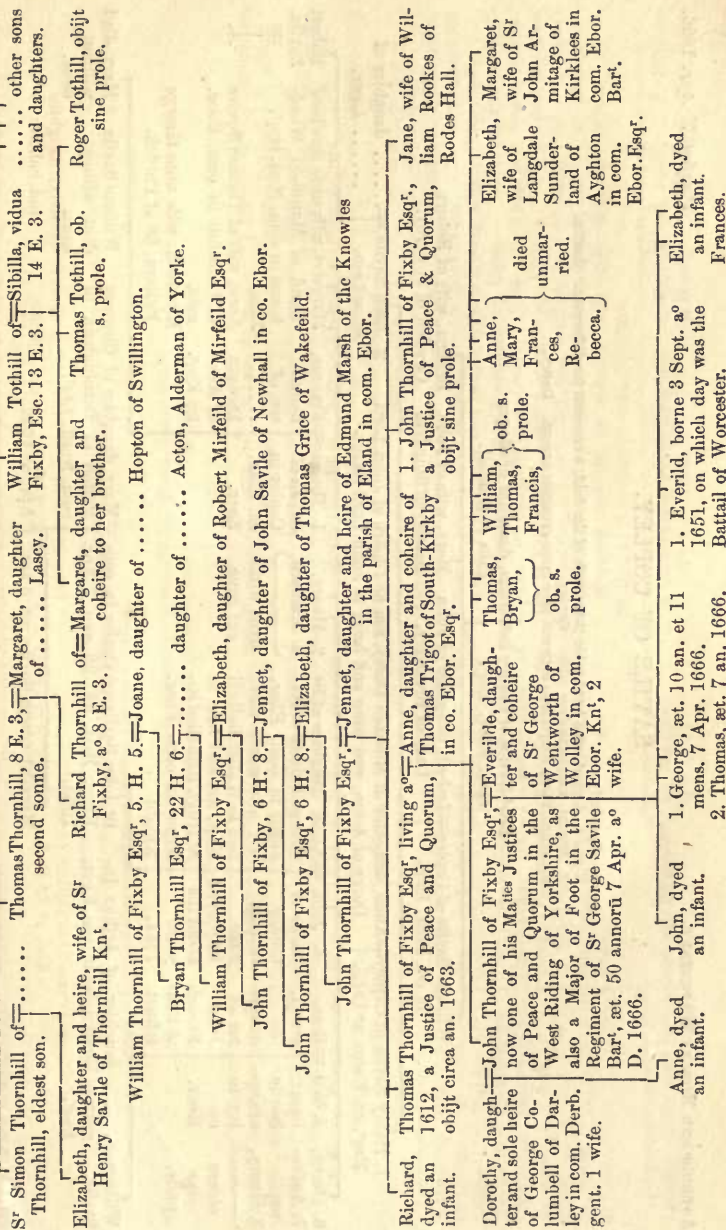 Sʳ Simon Thornhill of=......
Thornhill, eldest son.
Thomas Thornhill, 8 E. 3,=Margaret, daughter
second sonne.
of ...... Lascy.
William Tothill of=Sibilla, vidua
Fixby, Esc. 13 E. 3.
14 E. 3.
...... other sons
and daughters.
Elizabeth, daughter and heire, wife of Sʳ
Henry Savile of Thornhill Knᵗ.
Richard Thornhill of=Margaret, daughter and
Fixby, aᵒ 8 E. 3.
coheire to her brother.
Thomas Tothill, ob.
s. prole.
Roger Tothill, obijt
sine prole.
William Thornhill of Fixby Esqʳ, 5. H. 5.=Joane, daughter of ...... Hopton of Swillington.
Bryan Thornhill Esqʳ, 22 H. 6.=...... daughter of ...... Acton, Alderman of Yorke.
William Thornhill of Fixby Esqʳ.=Elizabeth, daughter of Robert Mirfeild of Mirfeild Esqʳ.
John Thornhill of Fixby, 6 H. 8.=Jennet, daughter of John Savile of Newhall in co. Ebor.
John Thornhill of Fixby Esqʳ, 6 H. 8.=Elizabeth, daughter of Thomas Grice of Wakefeild.
John Thornhill of Fixby Esqʳ.=Jennet, daughter and heire of Edmund Marsh of the Knowles
in the parish of Eland in com. Ebor.
Richard,
dyed an
infant.
Thomas Thornhill of Fixby Esqʳ, living aᵒ=Anne, daughter and coheire of
1612, a Justice of Peace and Quorum,
obijt circa an. 1663.
Thomas Trigot of South-Kirkby
in co. Ebor. Esqʳ.
1. John Thornhill of Fixby Esqʳ,
a Justice of Peace & Quorum,
obijt sine prole.
Jane, wife of Wil-
liam Rookes of
Rodes Hall.
Dorothy, daugh-
ter and sole heire
of George Co-
lumbell of Dar-
ley in com. Derb.
gent. 1 wife.
=John Thornhill of Fixby Esqʳ,=
now one of his Maᵗⁱᵉˢ Justices
of Peace and Quorum in the
West Riding of Yorkshire, as
also a Major of Foot in the
Regiment of Sʳ George Savile
Barᵗ, æt. 50 annorū 7 Apr. aᵒ
D. 1666.
Everilde, daugh-
ter and coheire
of Sʳ George
Wentworth of
Wolley in com.
Ebor. Knᵗ, 2
wife.
Thomas,
Bryan,
ob. s.
prole.
William,
Thomas,
Francis,
ob. s.
prole.
Anne,
Mary,
Fran-
ces,
Re-
becca.
died
unmar-
ried.
Elizabeth,
wife of
Langdale
Sunder-
land of
Ayghton
in com.
Ebor. Esqʳ.
Margaret,
wife of Sʳ
John Ar-
mitage of
Kirklees in
com. Ebor.
Barᵗ.
Anne, dyed
an infant.
John, dyed
an infant.
1. George, æt. 10 an. et 11
mens. 7 Apr. 1666.
2. Thomas, æt. 7 an. 1666.
1. Everild, borne 3 Sept. aᵒ
1651, on which day was the
Battail of Worcester.
Elizabeth, dyed
an infant.
Frances.